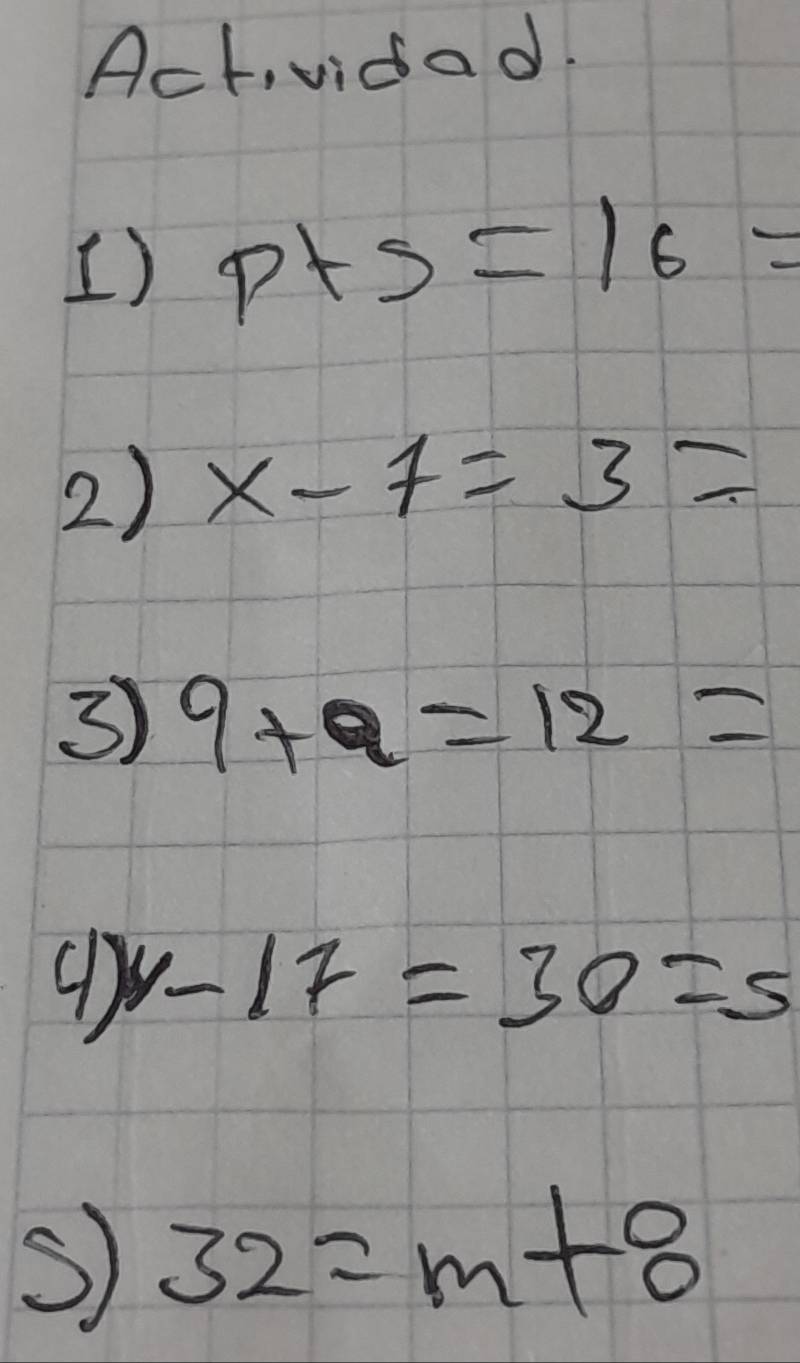 Actividad.
1) p+5=16=
2) x-7=3=
3) 9+a=12=
4) y-17=30=5
5) 32=m+8